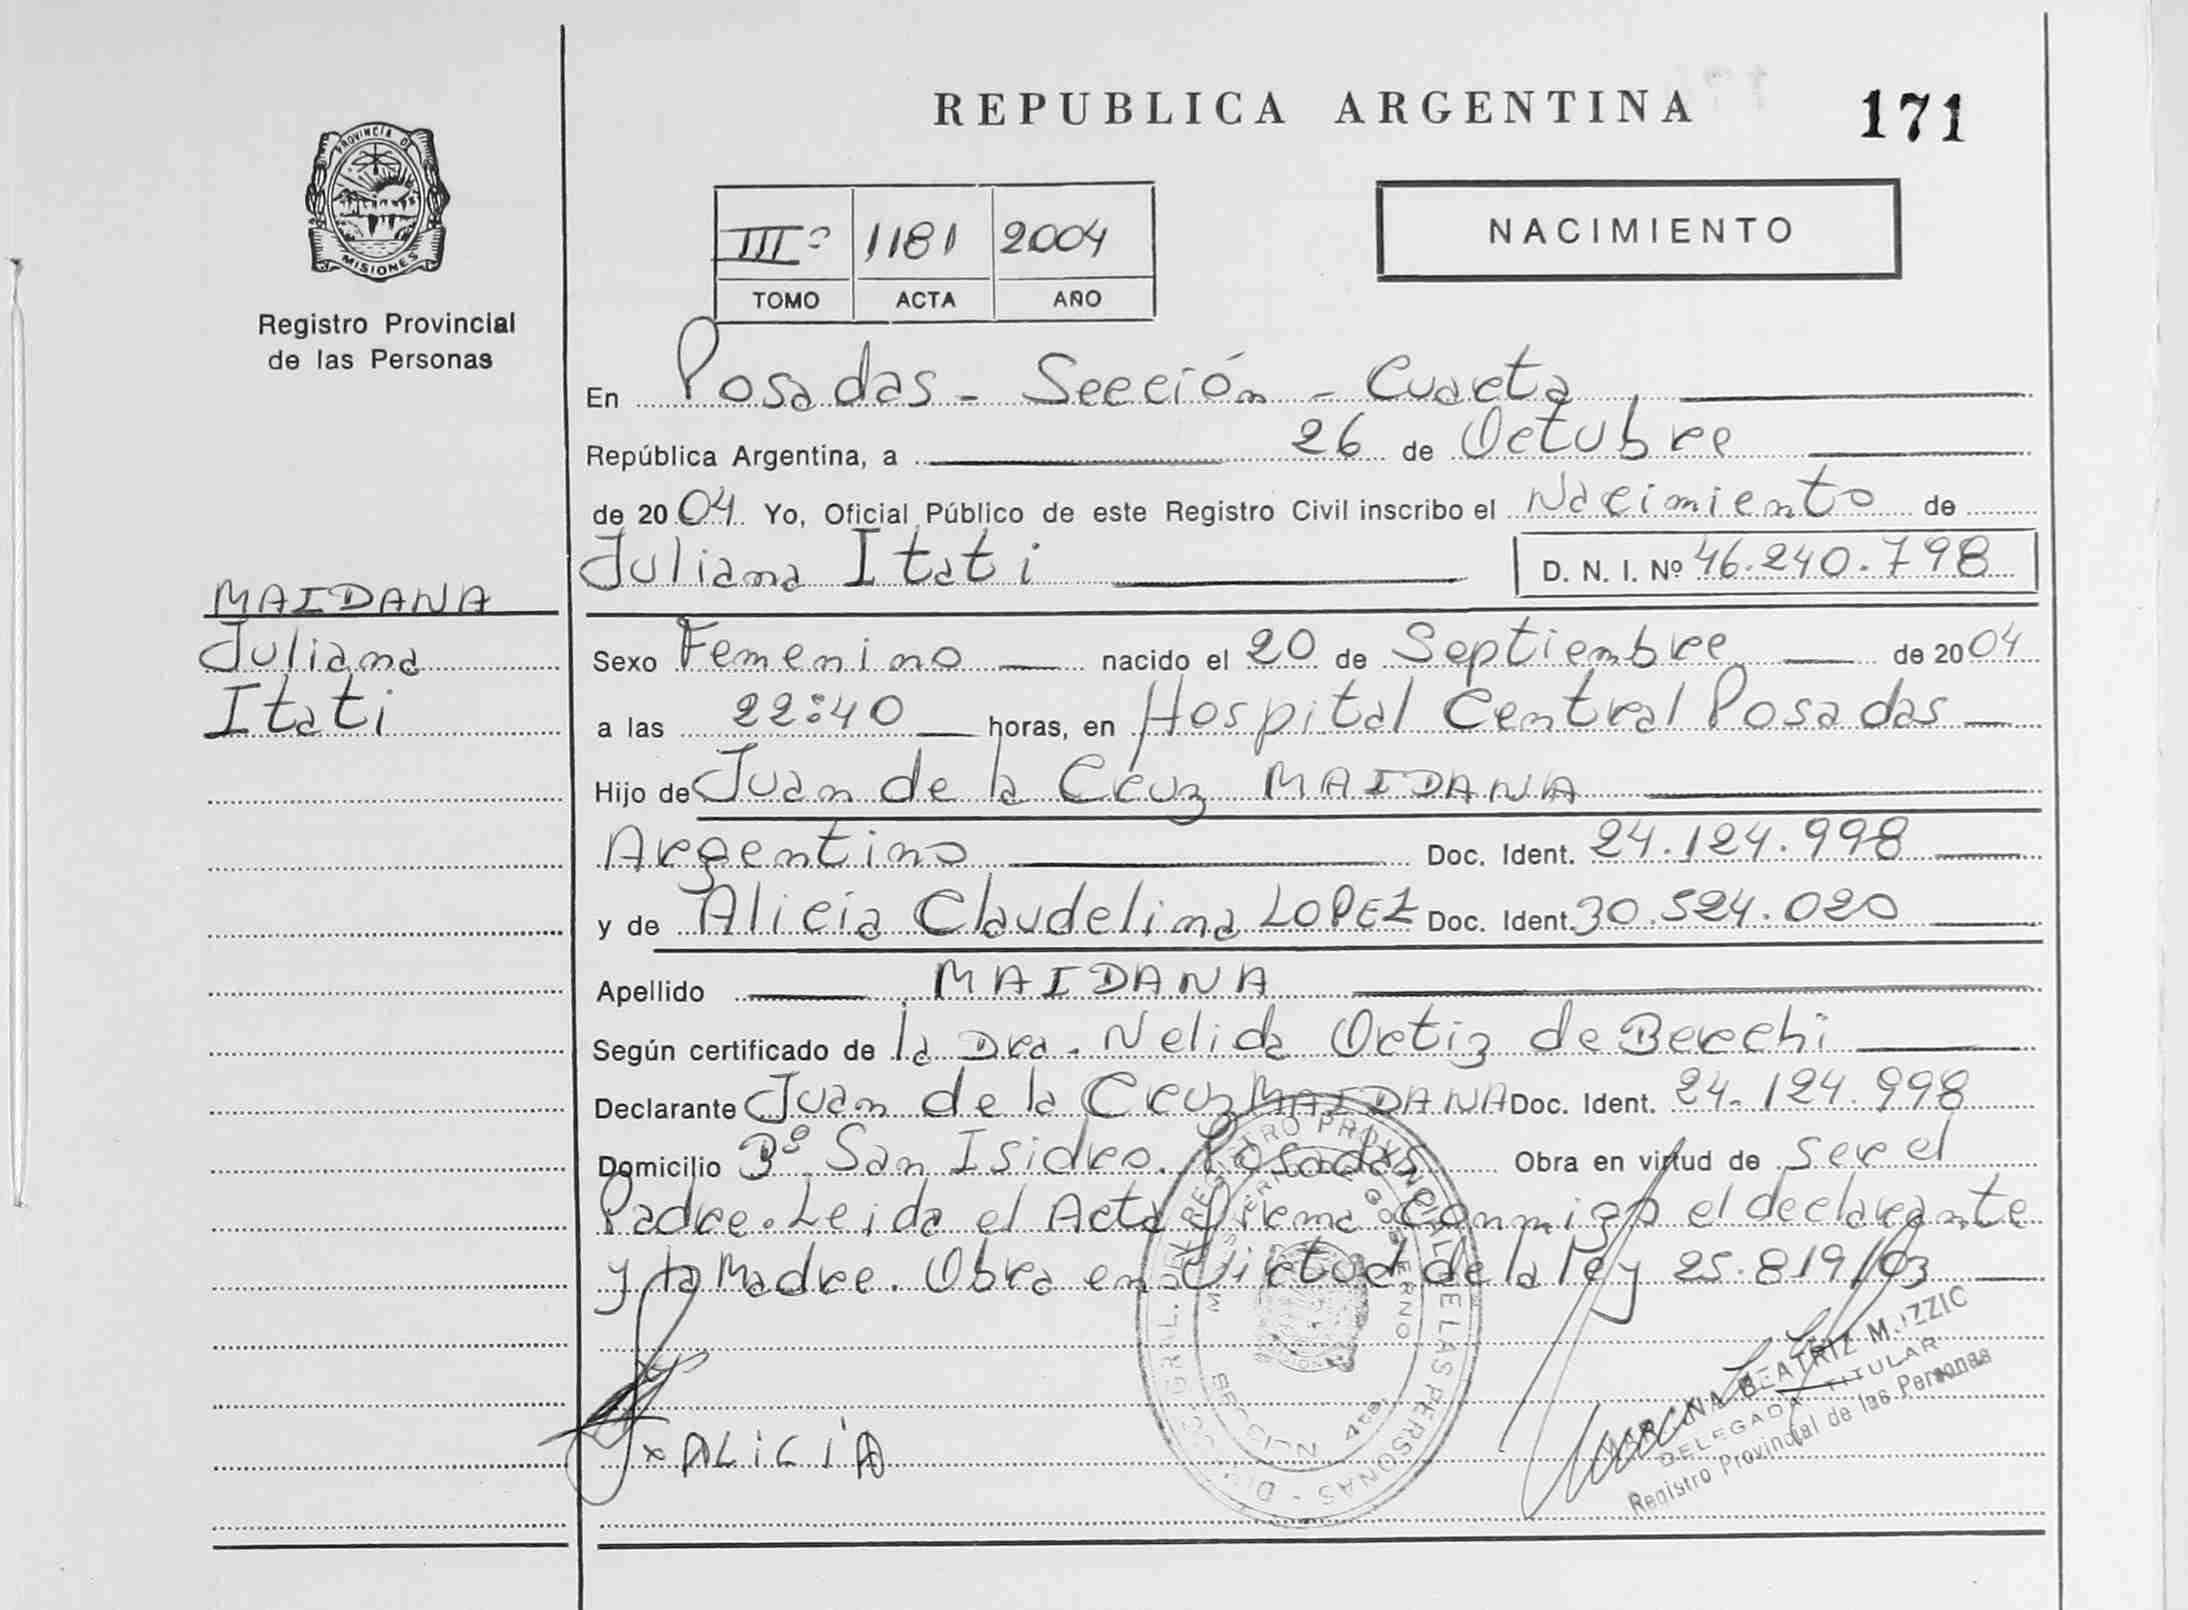 REPUBLICA ARGENTINA
171
PROVINCIA D
MISIONES
Registro Provincial
de las Personas
IIIº 1181 2004
TOMO ACTA AÑO
NACIMIENTO
En Posadas - Sección - Cuarta
República Argentina, a 26 de Octubre
de 2004 Yo, Oficial Público de este Registro Civil inscribo el Nacimiento de
Juliana Itati D. N. I. Nº 46.240.798
MAIDANA
Juliana
Itati
Sexo Femenino nacido el 20 de Septiembre de 2004
a las 22:40 horas, en Hospital Central Posadas
Hijo de Juan de la Cruz MAIDANA
Argentino Doc. Ident. 24.124.998
y de Alicia Claudelina LOPEZ Doc. Ident. 30.524.020
Apellido MAIDANA
Según certificado de la Dra. Nelida Ortiz de Berchi
Declarante Juan de la Cruz MAIDANA Doc. Ident. 24.124.998
Domicilio Bº San Isidro. Posadas Obra en virtud de ser el
Padre. Leida el Acta firma conmigo el declarante
y la Madre. Obra en Virtud de la ley 25.819/03
x ALiCiA
GRAL. DEL REGISTRO PROVINCIAL DE LAS PERSONAS
GOBIERNO
SECCION 4ta
BEATRIZ
DELEGADA TITULAR
Registro Provincial de las Personas